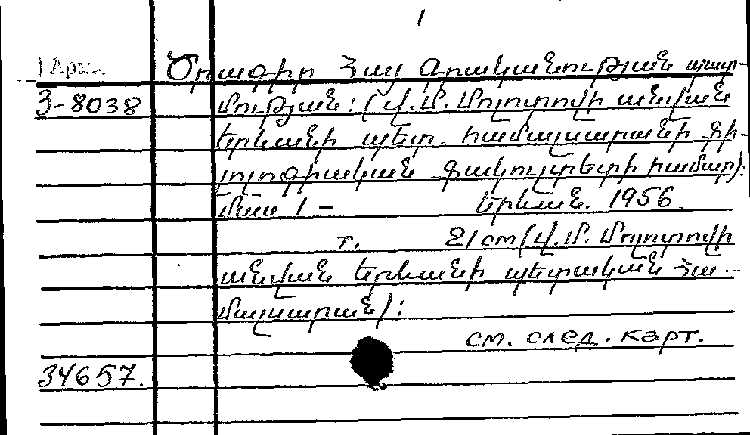 1
1 Арм.
Ծրագիր Հայ գրականության պատ-
3-8038 մության: (Վ.Մ.Մոլոտովի անվան
Երևանի պետ. համալսարանի ֆի-
լոլոգիական ֆակուլտետի համար):
Մաս 1 – Երևան. 1956.
т. 21 cm (Վ.Մ. Մոլոտովի
անվան Երևանի պետական Հա-
մալսարան):
см. след. карт.
34657.